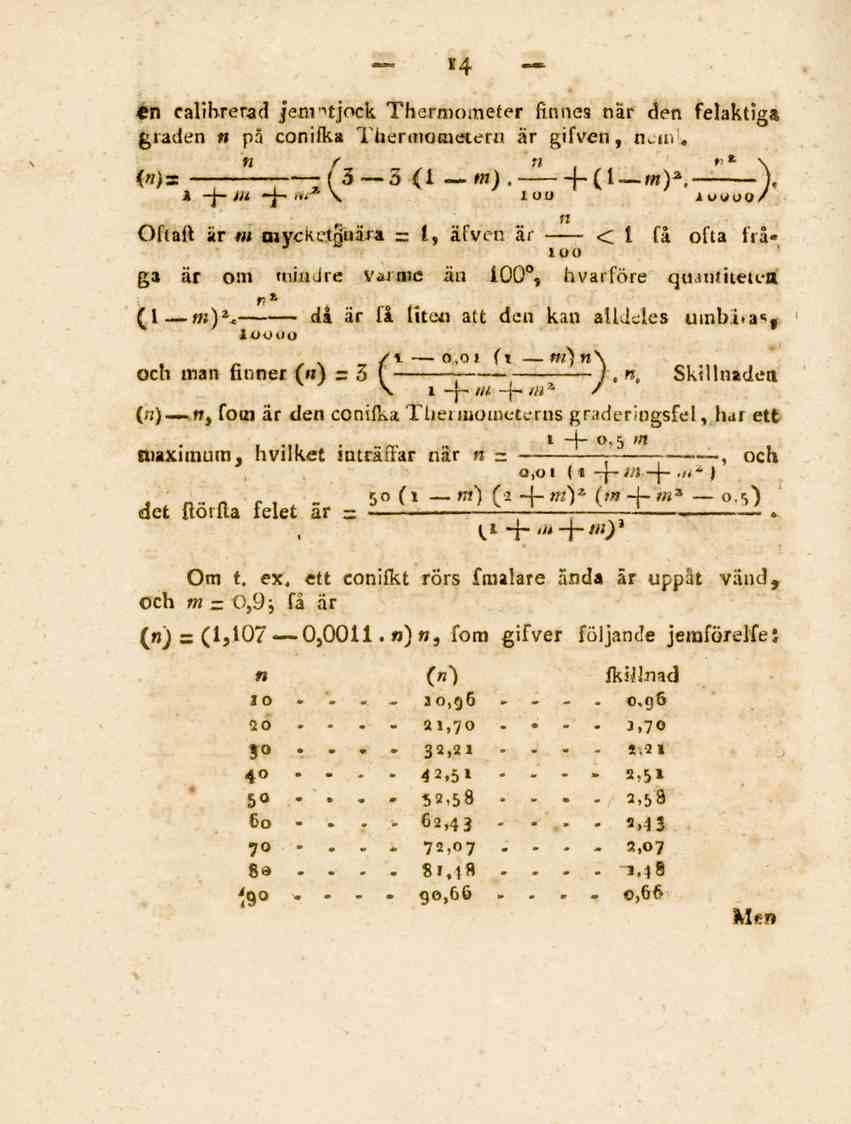 — 14 —
en calibrerad jemntjock Thermometer finnes när den felaktiga
graden n på coniſka Thermometern är gifven, neml.
(n) = n / (1 + m + m²) (3 — 3 (1 — m) . n/100 + (1 — m)². n²/10000).
Oftaſt är m mycket nära = 1, äfven är n/100 < 1 ſå ofta frå-
ga är om mindre varme än 100°, hvarföre quantiteten
(1 — m)². n²/10000 då är ſå liten att den kan alldeles umbäras,
och man finner (n) = 3 ((1 — 0,01 (1 — m) n) / (1 + m + m²)) . n. Skillnaden
(n) — n, ſom är den coniſka Thermometerns graderingsfel, har ett
maximum, hvilket inträffar når n = (1 + 0,5 m) / (0,01 (1 + m + m²)), och
det ſtörſta felet är = 50 (1 — m) (2 + m)² (m + m² — 0,5) / (1 + m + m)³ .
Om t. ex. ett coniſkt rörs ſmalare ända är uppåt vänd,
och m = 0,9; ſå är
(n) = (1,107 — 0,0011 . n) n, ſom gifver följande jemförelſe:
n (n) ſkillnad
10 - - - - 10,96 - - - - 0,96
20 - - - - 21,70 - - - - 1,70
30 - - - - 32,21 - - - - 2,21
40 - - - - 42,51 - - - - 2,51
50 - - - - 52,58 - - - - 2,58
60 - - - - 62,43 - - - - 2,43
70 - - - - 72,07 - - - - 2,07
80 - - - - 81,48 - - - - 1,48
90 - - - - 90,66 - - - - 0,66
Men